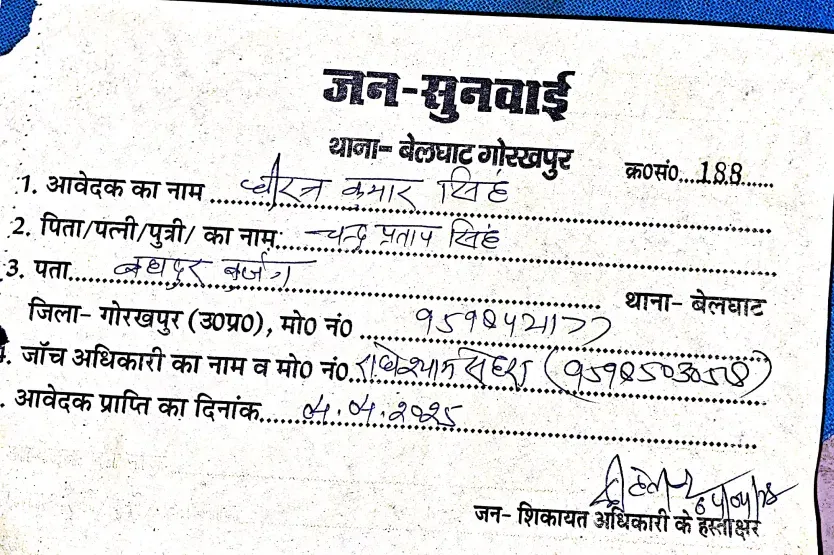 जन-सुनवाई
थाना- बेलघाट गोरखपुर क्र0सं0...188......
1. आवेदक का नाम ......... कुमार सिंह
2. पिता/पत्नी/पुत्री/ का नाम:....चन्द्र प्रताप सिंह
3. पता..... थाना- बेलघाट
जिला- गोरखपुर (उ0प्र0), मो0 नं0 ....
4. जाँच अधिकारी का नाम व मो0 नं0.राधेश्याम (9598503058)
. आवेदक प्राप्ति का दिनांक.....04.04.2025
जन- शिकायत अधिकारी के हस्ताक्षर